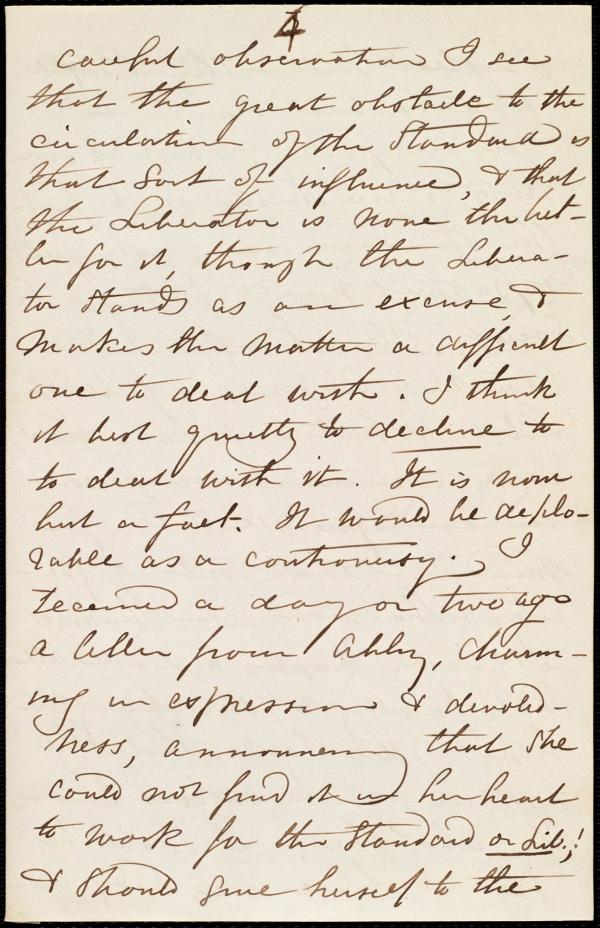 4
careful observation I see
that the great obstacle to the
circulation of the Standard is
that sort of influence, & that
the Liberator is none the bet-
ter for it, though the Libera-
tor stands as an excuse, &
makes the matter a difficult
one to deal with. I think
it best quietly to decline to
to deal with it. It is now
but a fact. It would be deplo-
rable as a controversy. I
received a day or two ago
a letter from Abby, charm-
ing in expression & devoted-
ness, announcing that she
could not find it in her heart
to work for the Standard or Lib.;!
& should give herself to the